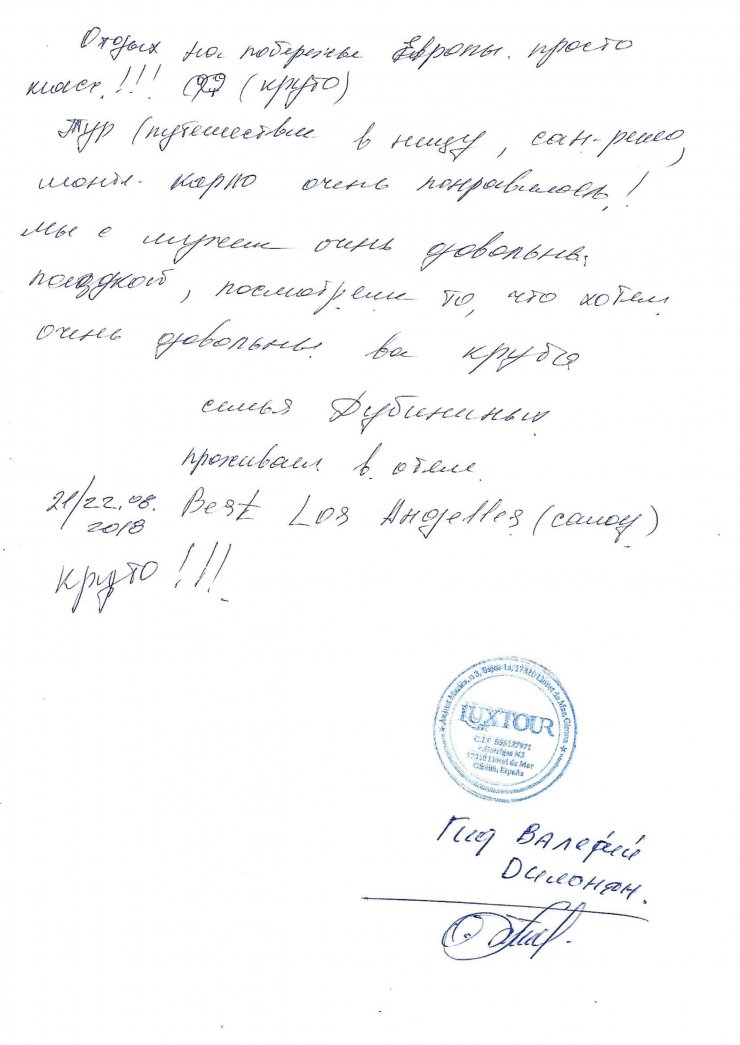 Отдых на побережье Европы. просто
класс!!! (круто)
Тур (путешествие в ниццу, сан-ремо,
монте-карло очень понравилось!
мы с мужем очень довольны
поездкой, посмотрели то, что хотели
очень довольны
семья Дубининых
проживаем в отеле
21/22.08.
2018
Best Los Angelles (салоу)
круто!!!
17310 Lloret de Mar Girona
LUXTOUR
C.I.F B55187971
c.Garrigas N3
17310 Lloret de Mar
Girona, España
Гид Валерий